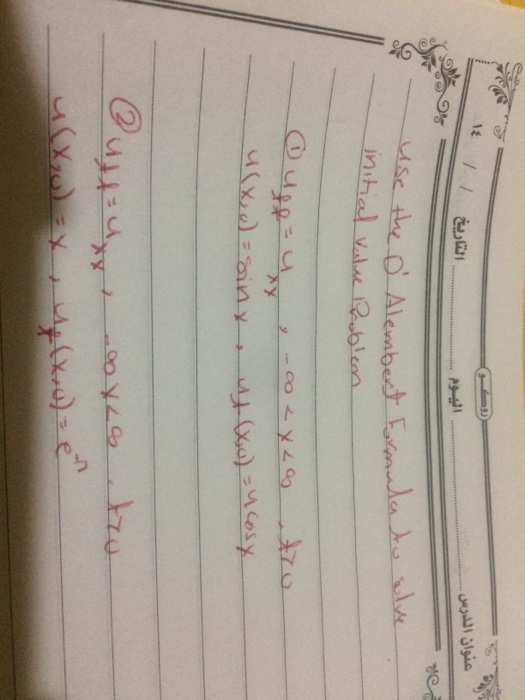 روكو
١٤ / / التاريخ .......... اليوم .......... عنوان الدرس ..........
use the D' Alembert Formula to solve
initial value Problem
① u_tt = u_xx , -∞ < x < ∞ , t>0
u(x,0) = sin x , u_t(x,0) = 4cosx
② u_tt = u_xx , -∞ x < ∞ , t>0
u(x,0) = x , u_t(x,0) = e^-x